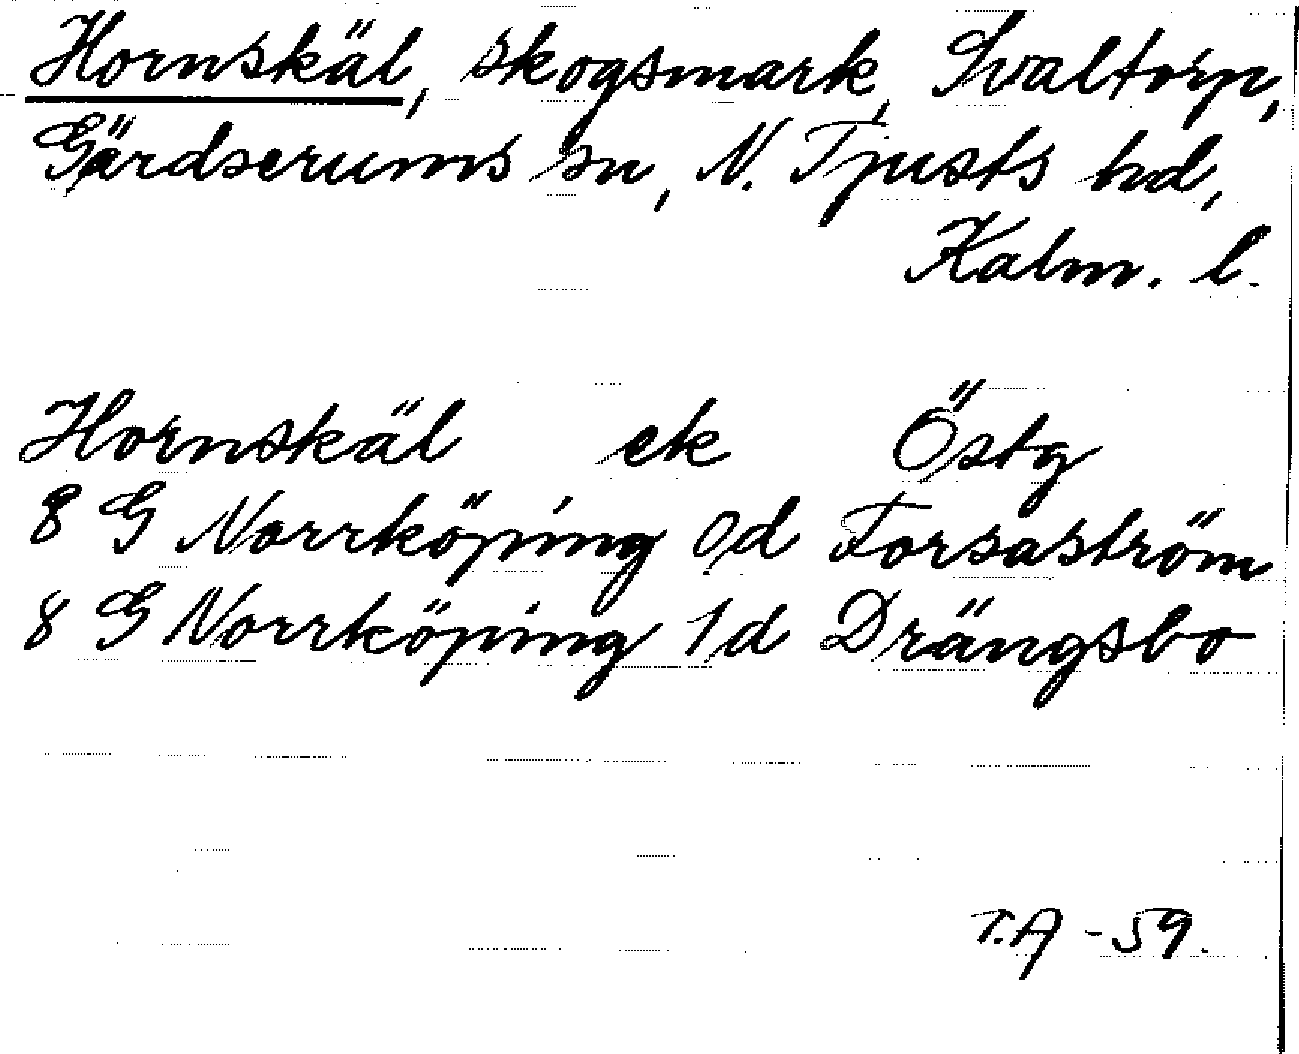 Hornskäl, skogsmark, Svaltorp,
Gärdserums sn, N. Tjusts hd,
Kalm. l.
Hornskäl ek Östg
8 G Norrköping 0d Forsaström
8 G Norrköping 1d Drängsbo
T.A -59.